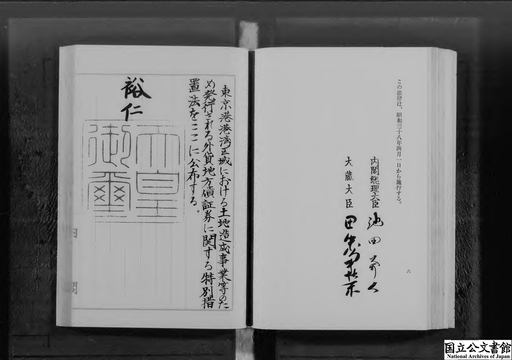 東京港港湾区域における土地造成事業等のた
め発行される外貨地方債証券に関する特別措
置法をここに公布する。
裕仁
天皇
御璽
この法律は、昭和三十八年四月一日から施行する。
内閣総理大臣 池田勇人
大蔵大臣 田中角栄
六
国立公文書館
National Archives of Japan